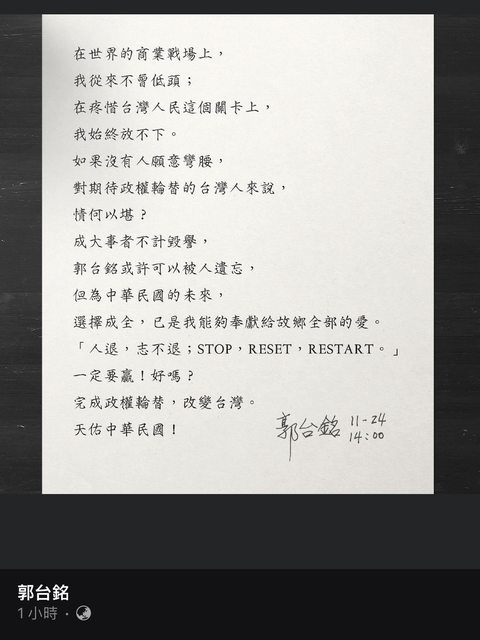 在世界的商業戰場上，
我從來不曾低頭；
在疼惜台灣人民這個關卡上，
我始終放不下。
如果沒有人願意彎腰，
對期待政權輪替的台灣人來說，
情何以堪？
成大事者不計毀譽，
郭台銘或許可以被人遺忘，
但為中華民國的未來，
選擇成全，已是我能夠奉獻給故鄉全部的愛。
「人退，志不退；STOP，RESET，RESTART。」
一定要贏！好嗎？
完成政權輪替，改變台灣。
天佑中華民國！
郭台銘 11-24
14:00
郭台銘
1 小時 ·